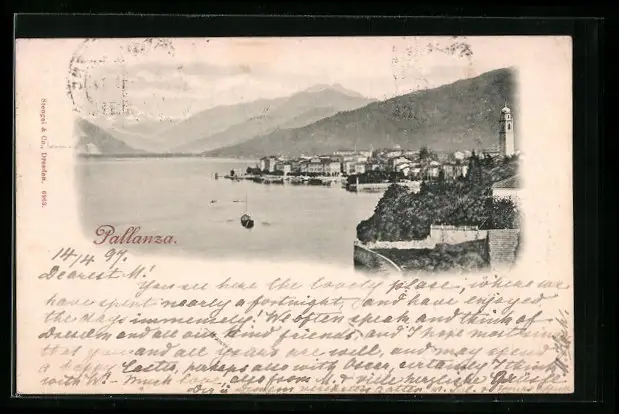 Stengel & Co., Dresden. 6963.
Pallanza.
14/4 97.
Dearest M!
You see here the lovely place, where we
have spent nearly a fortnight, and have enjoyed
the days immensely! We often speak and think of
Dresden and all our kind friends, and I hope
that you and all yours are well, and may spend
a happy perhaps also with Oscar, certainly
with W! - Much love, also from M. & viele herzliche Grüsse